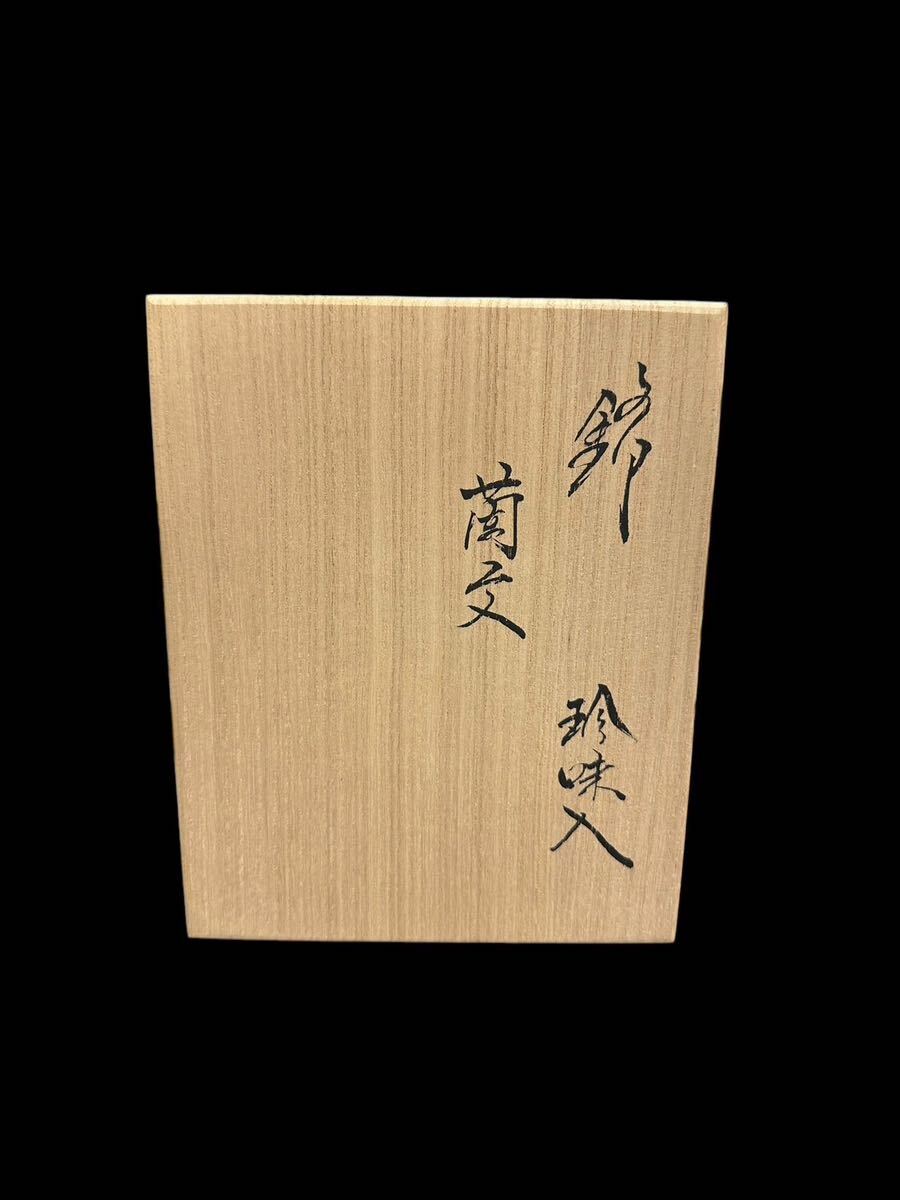 錦
蘭文
珍味入